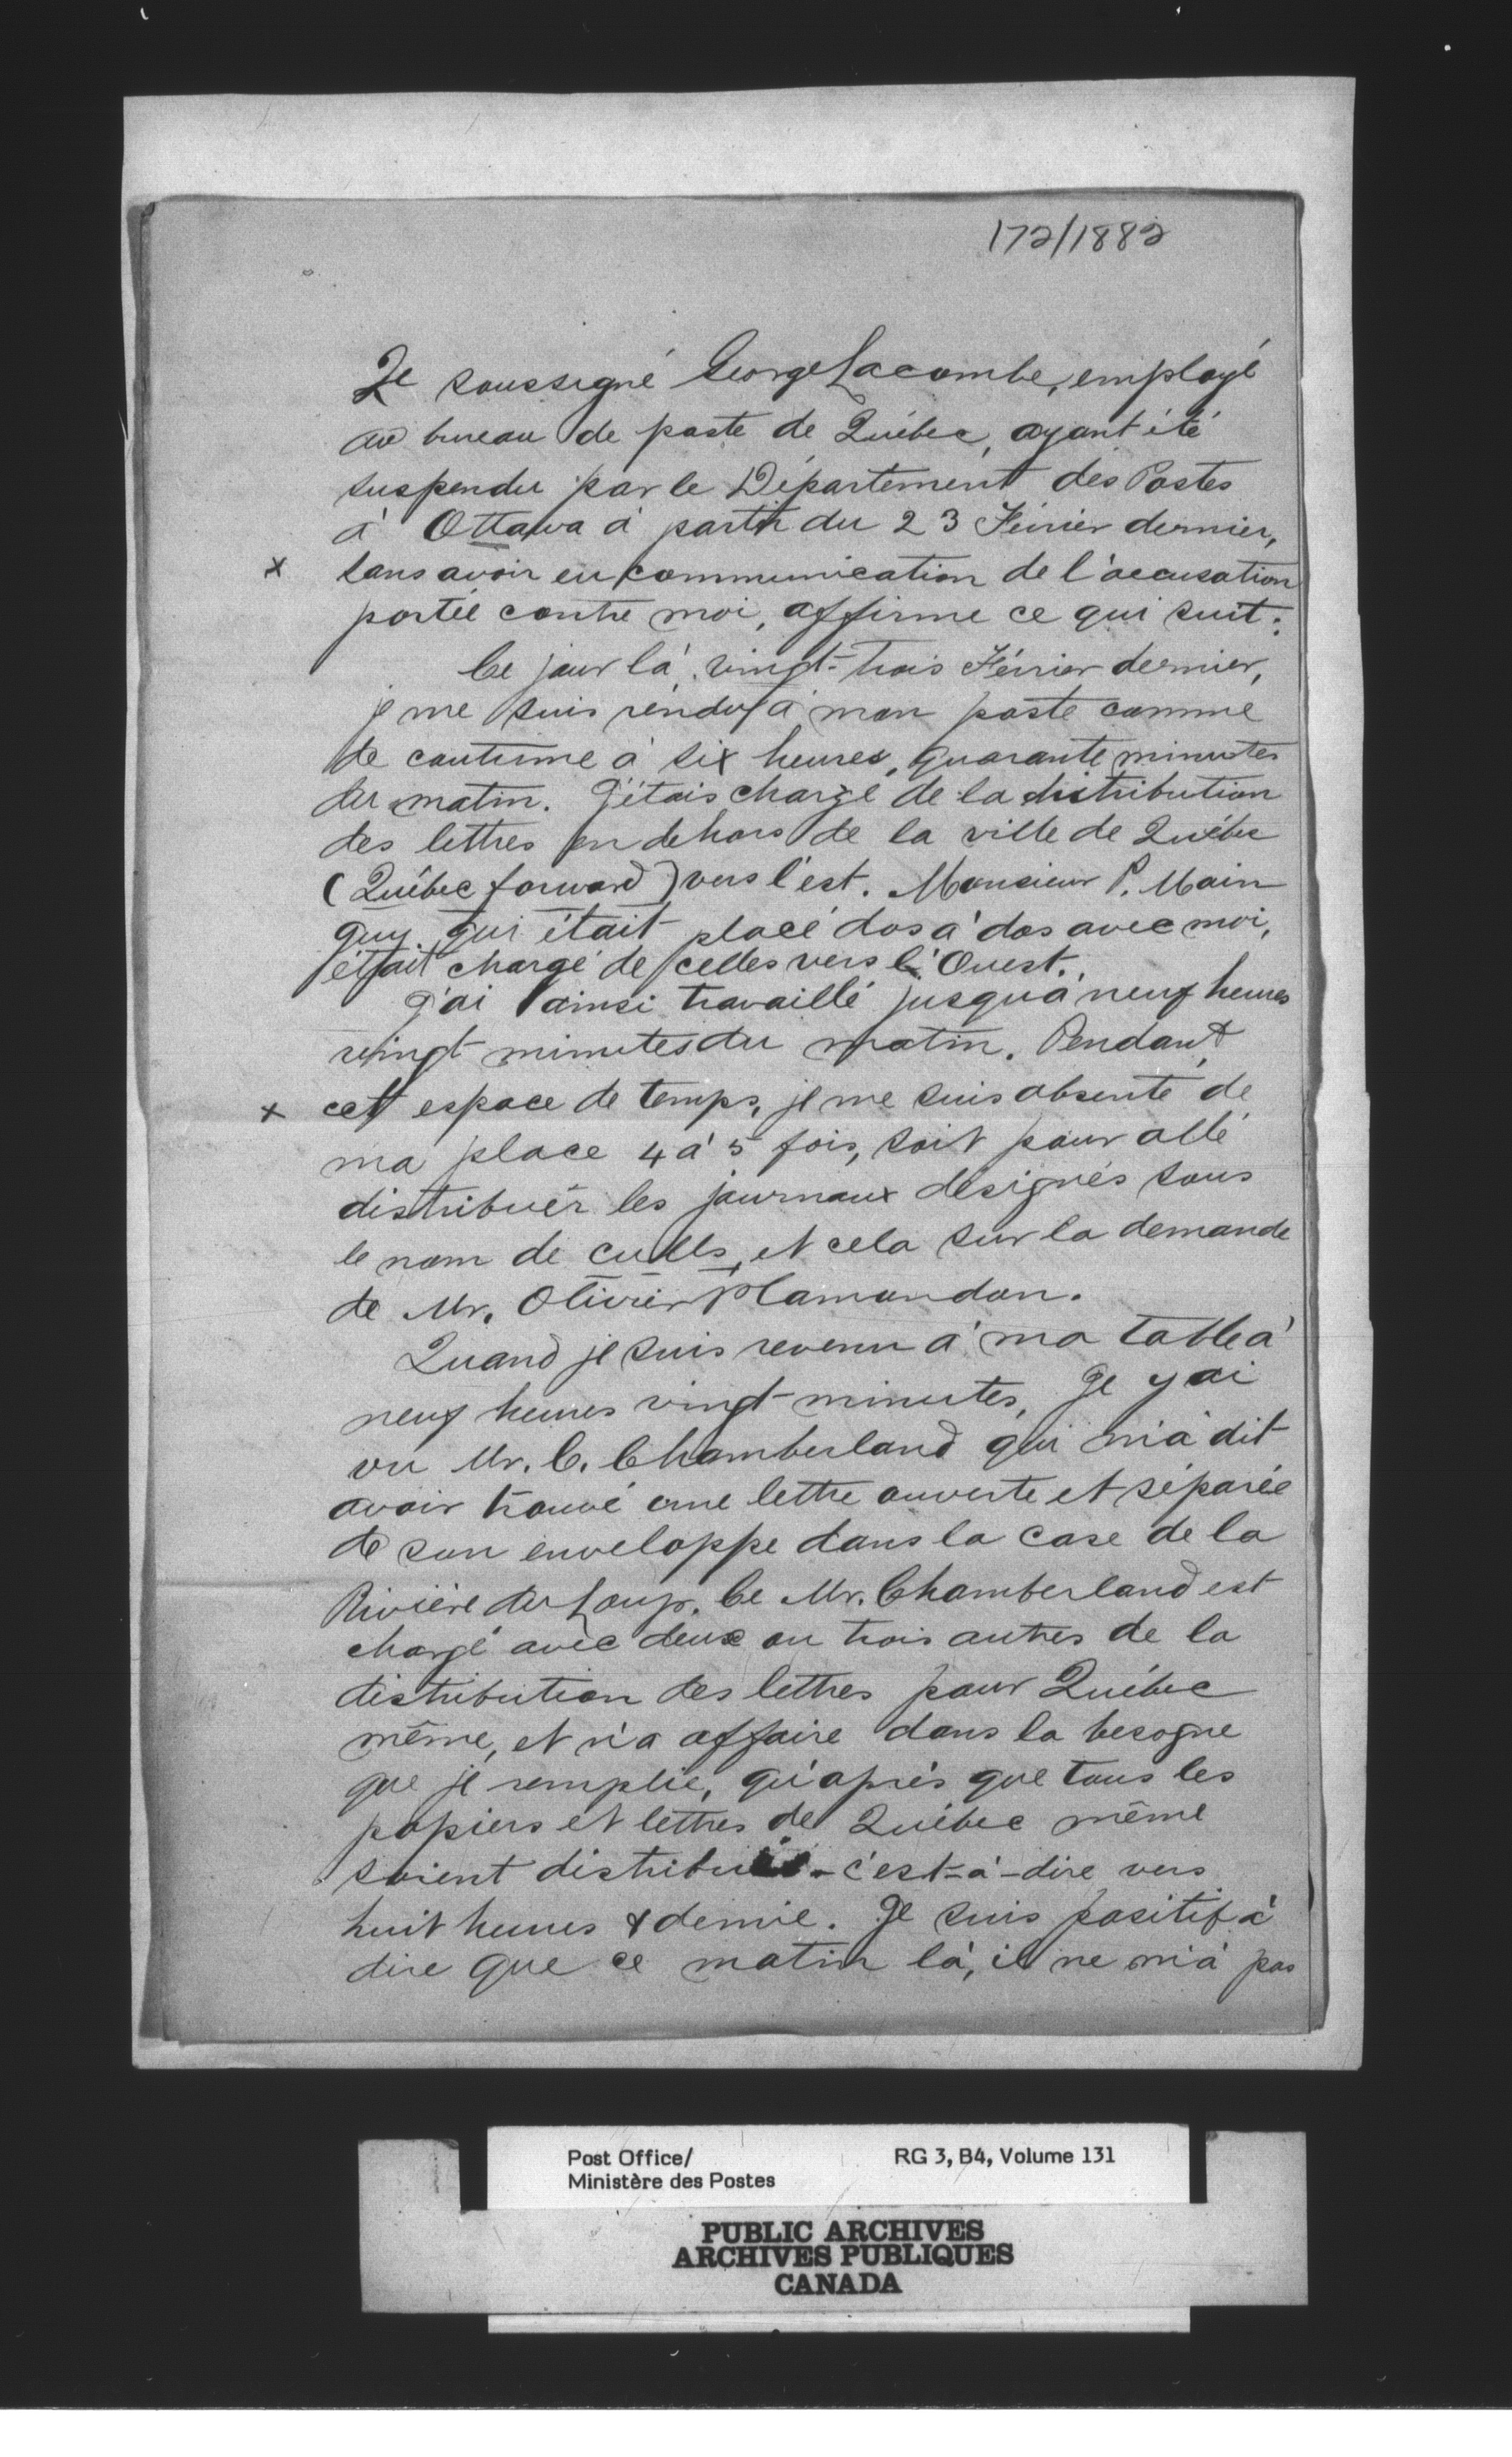 172/1882
Je soussigné George Lacombe, employé
au bureau de poste de Québec, ayant été
suspendu par le Département des Postes
à Ottawa à partir du 23 Février dernier,
x sans avoir eu communication de l'accusation
portée contre moi, affirme ce qui suit:
Ce jour là, vingt-trois Février dernier,
je me suis rendu à mon poste comme
de coutume à six heures, quarante minutes
du matin. J'étais chargé de la distribution
des lettres en dehors de la ville de Québec
(Québec forward) vers l'est. Monsieur P. Main
guy qui était placé dos à dos avec moi,
était chargé de celles vers l'Ouest.
J'ai ainsi travaillé jusqu'à neuf heures
vingt minutes du matin. Pendant
x cet espace de temps, je me suis absenté de
ma place 4 à 5 fois, soit pour allé
distribuér les journaux désignés sous
le nom de culls, et cela sur la demande
de Mr. Olivier Plamondon.
Quand je suis revenu à ma table à
neuf heures vingt-minutes, Je y ai
vu Mr. C. Chamberland qui m'a dit
avoir trouvé une lettre ouverte et séparée
de son enveloppe dans la case de la
Rivière du Loup. Ce Mr. Chamberland est
chargé avec deux ou trois autres de la
distribution des lettres pour Québec
même, et n'a affaire dans la besogne
que je remplie, qu'après que tous les
papiers et lettres de Québec même
soient distribués - c'est-à-dire vers
huit heures & demie. Je suis positif à
dire que ce matin là, il ne m'a pas
Post Office/
Ministère des Postes
RG 3, B4, Volume 131
PUBLIC ARCHIVES
ARCHIVES PUBLIQUES
CANADA